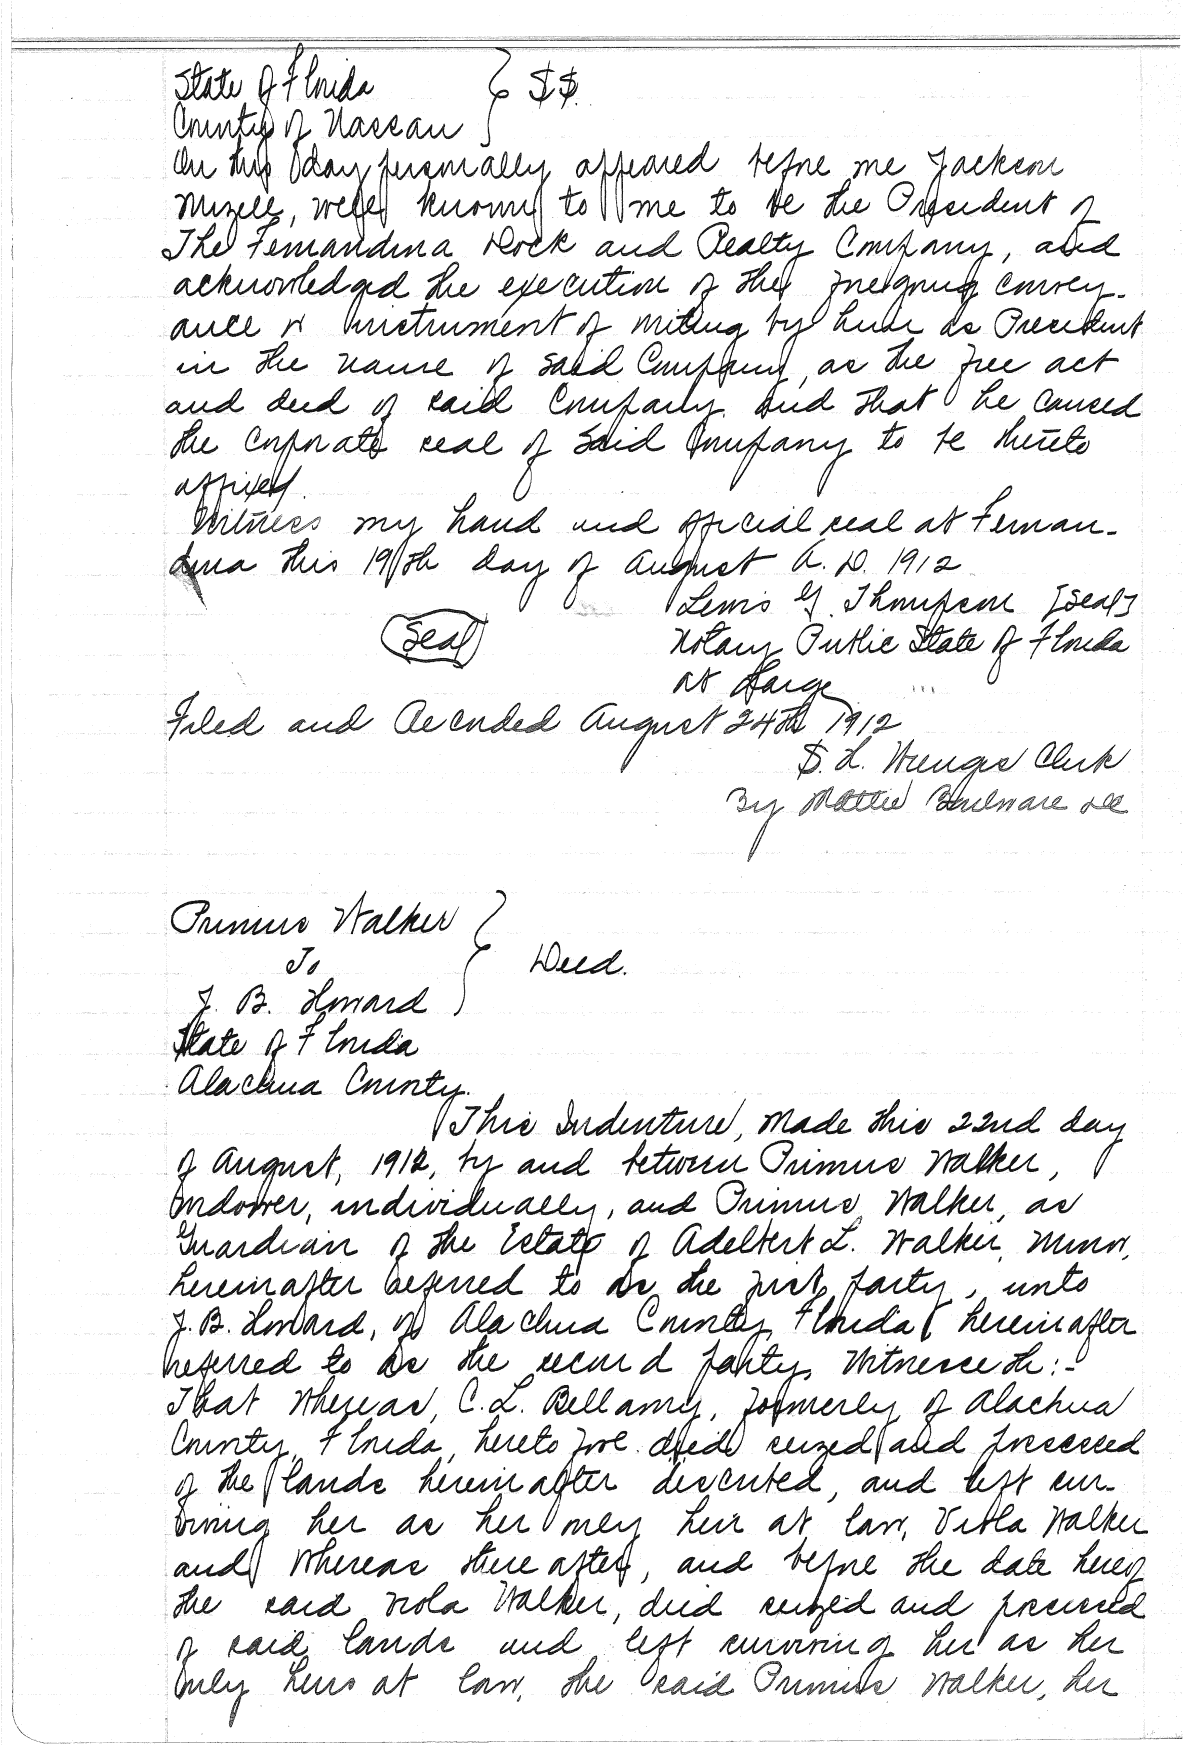 State of Florida } SS.
County of Nassau
On this day personally appeared before me Jackson
Mizell, well known to me to be the President of
The Fernandina Dock and Realty Company, and
acknowledged the execution of the foregoing convey-
ance or instrument of writing by him as President
in the name of said Company, as the free act
and deed of said Company. And that he caused
the corporate seal of said Company to be thereto
affixed.
Witness my hand and official seal at Fernan-
dina this 19th day of August A. D. 1912
Lewis G. Thompson [Seal]
Seal
Notary Public State of Florida
at Large
Filed and Recorded August 24th 1912
Clerk
By Mattie Boulware DC
Primus Walker
To } Deed.
J. B. Howard
State of Florida
Alachua County.
This Indenture, Made this 22nd day
of August, 1912, by and between Primus Walker,
widower, individually, and Primus Walker, as
Guardian of the Estate of Adelbert L. Walker, Minor,
hereinafter referred to as the first party, unto
J. B. Howard, of Alachua County, Florida, hereinafter
referred to as the second party, Witnesseth:-
That Whereas, C. L. Bellamy, formerly of Alachua
County, Florida, heretofore died seized and possessed
of the lands hereinafter described, and left sur-
viving her as her only heir at law, Viola Walker
and Whereas thereafter, and before the date hereof
the said Viola Walker, died seized and possessed
of said lands and left surviving her as her
only heirs at law, the said Primus Walker, her